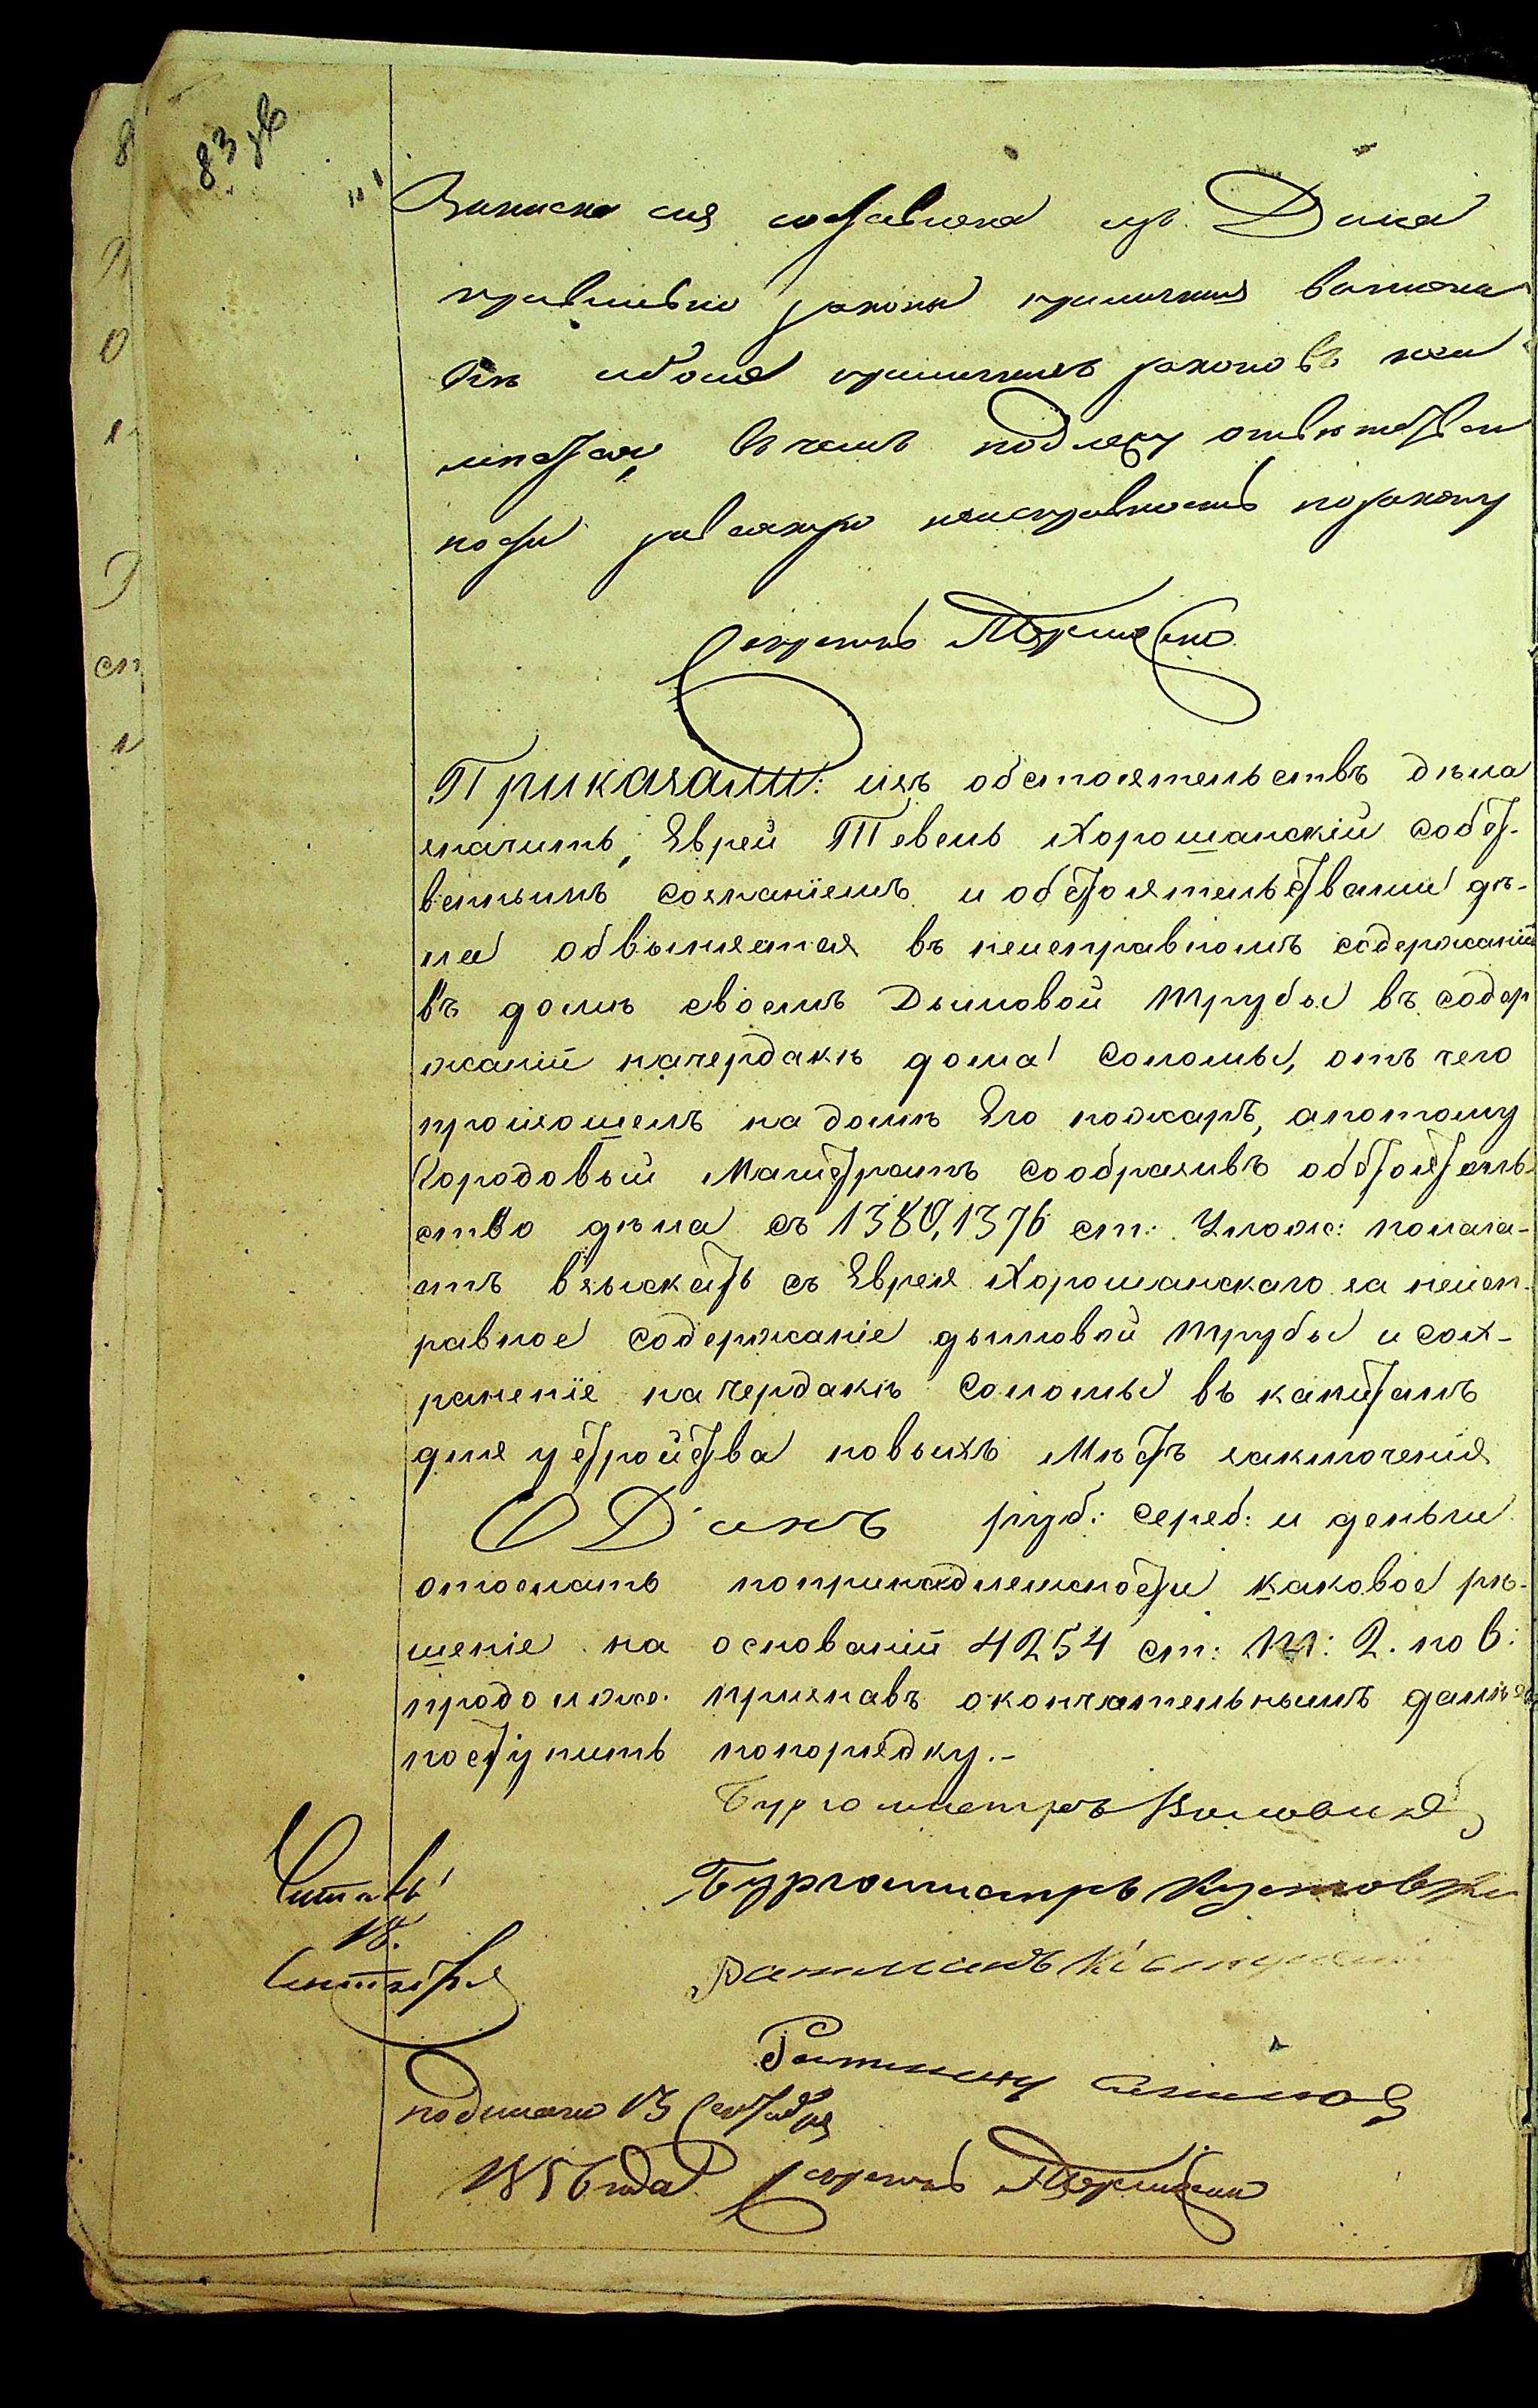 83 об
Записка сия составлена изъ Дела
правильно законы приличныя
более приличныхъ законовъ не
имеется, въ чемъ подлежу ответствен
ности за всякую неисправность по закону
Секретарь
Приказали: изъ обстоятельствъ дѣла
значитъ, Еврей Тевель Хорошанскій собст-
веннымъ сознаніемъ и обстоятельствами дѣ-
ла обвиняется въ неисправномъ содержаніи
въ домѣ своемъ Дымовой трубы въ содер
жаніи начердакѣ дома соломы, отъ чего
произошелъ на домѣ Его пожаръ, апотому
Городовый Магистратъ сообразивъ обстоятель-
ство дѣла съ 1380, 1376 ст: Улож: полага-
етъ взыскать съ Еврея Хорошанскаго за неисп-
равное содержаніе дымовой трубы и сох-
раненіе на чердакѣ Соломы въ капиталъ
для устройства новыхъ Мѣстъ заключенія
ОДинъ руб: сереб: и деньги
отослать попринадлежности каковое рѣ-
шеніе на основаніи 4254 ст: 2. по 6:
продолж. признавъ окончательнымъ далѣе
поступить попорядку.-
Бургомистръ
Бургомистръ
Ратманъ
Ратманъ
Читалъ
18.
Сентября
подписано 13 Сентября
1856 года Секретарь